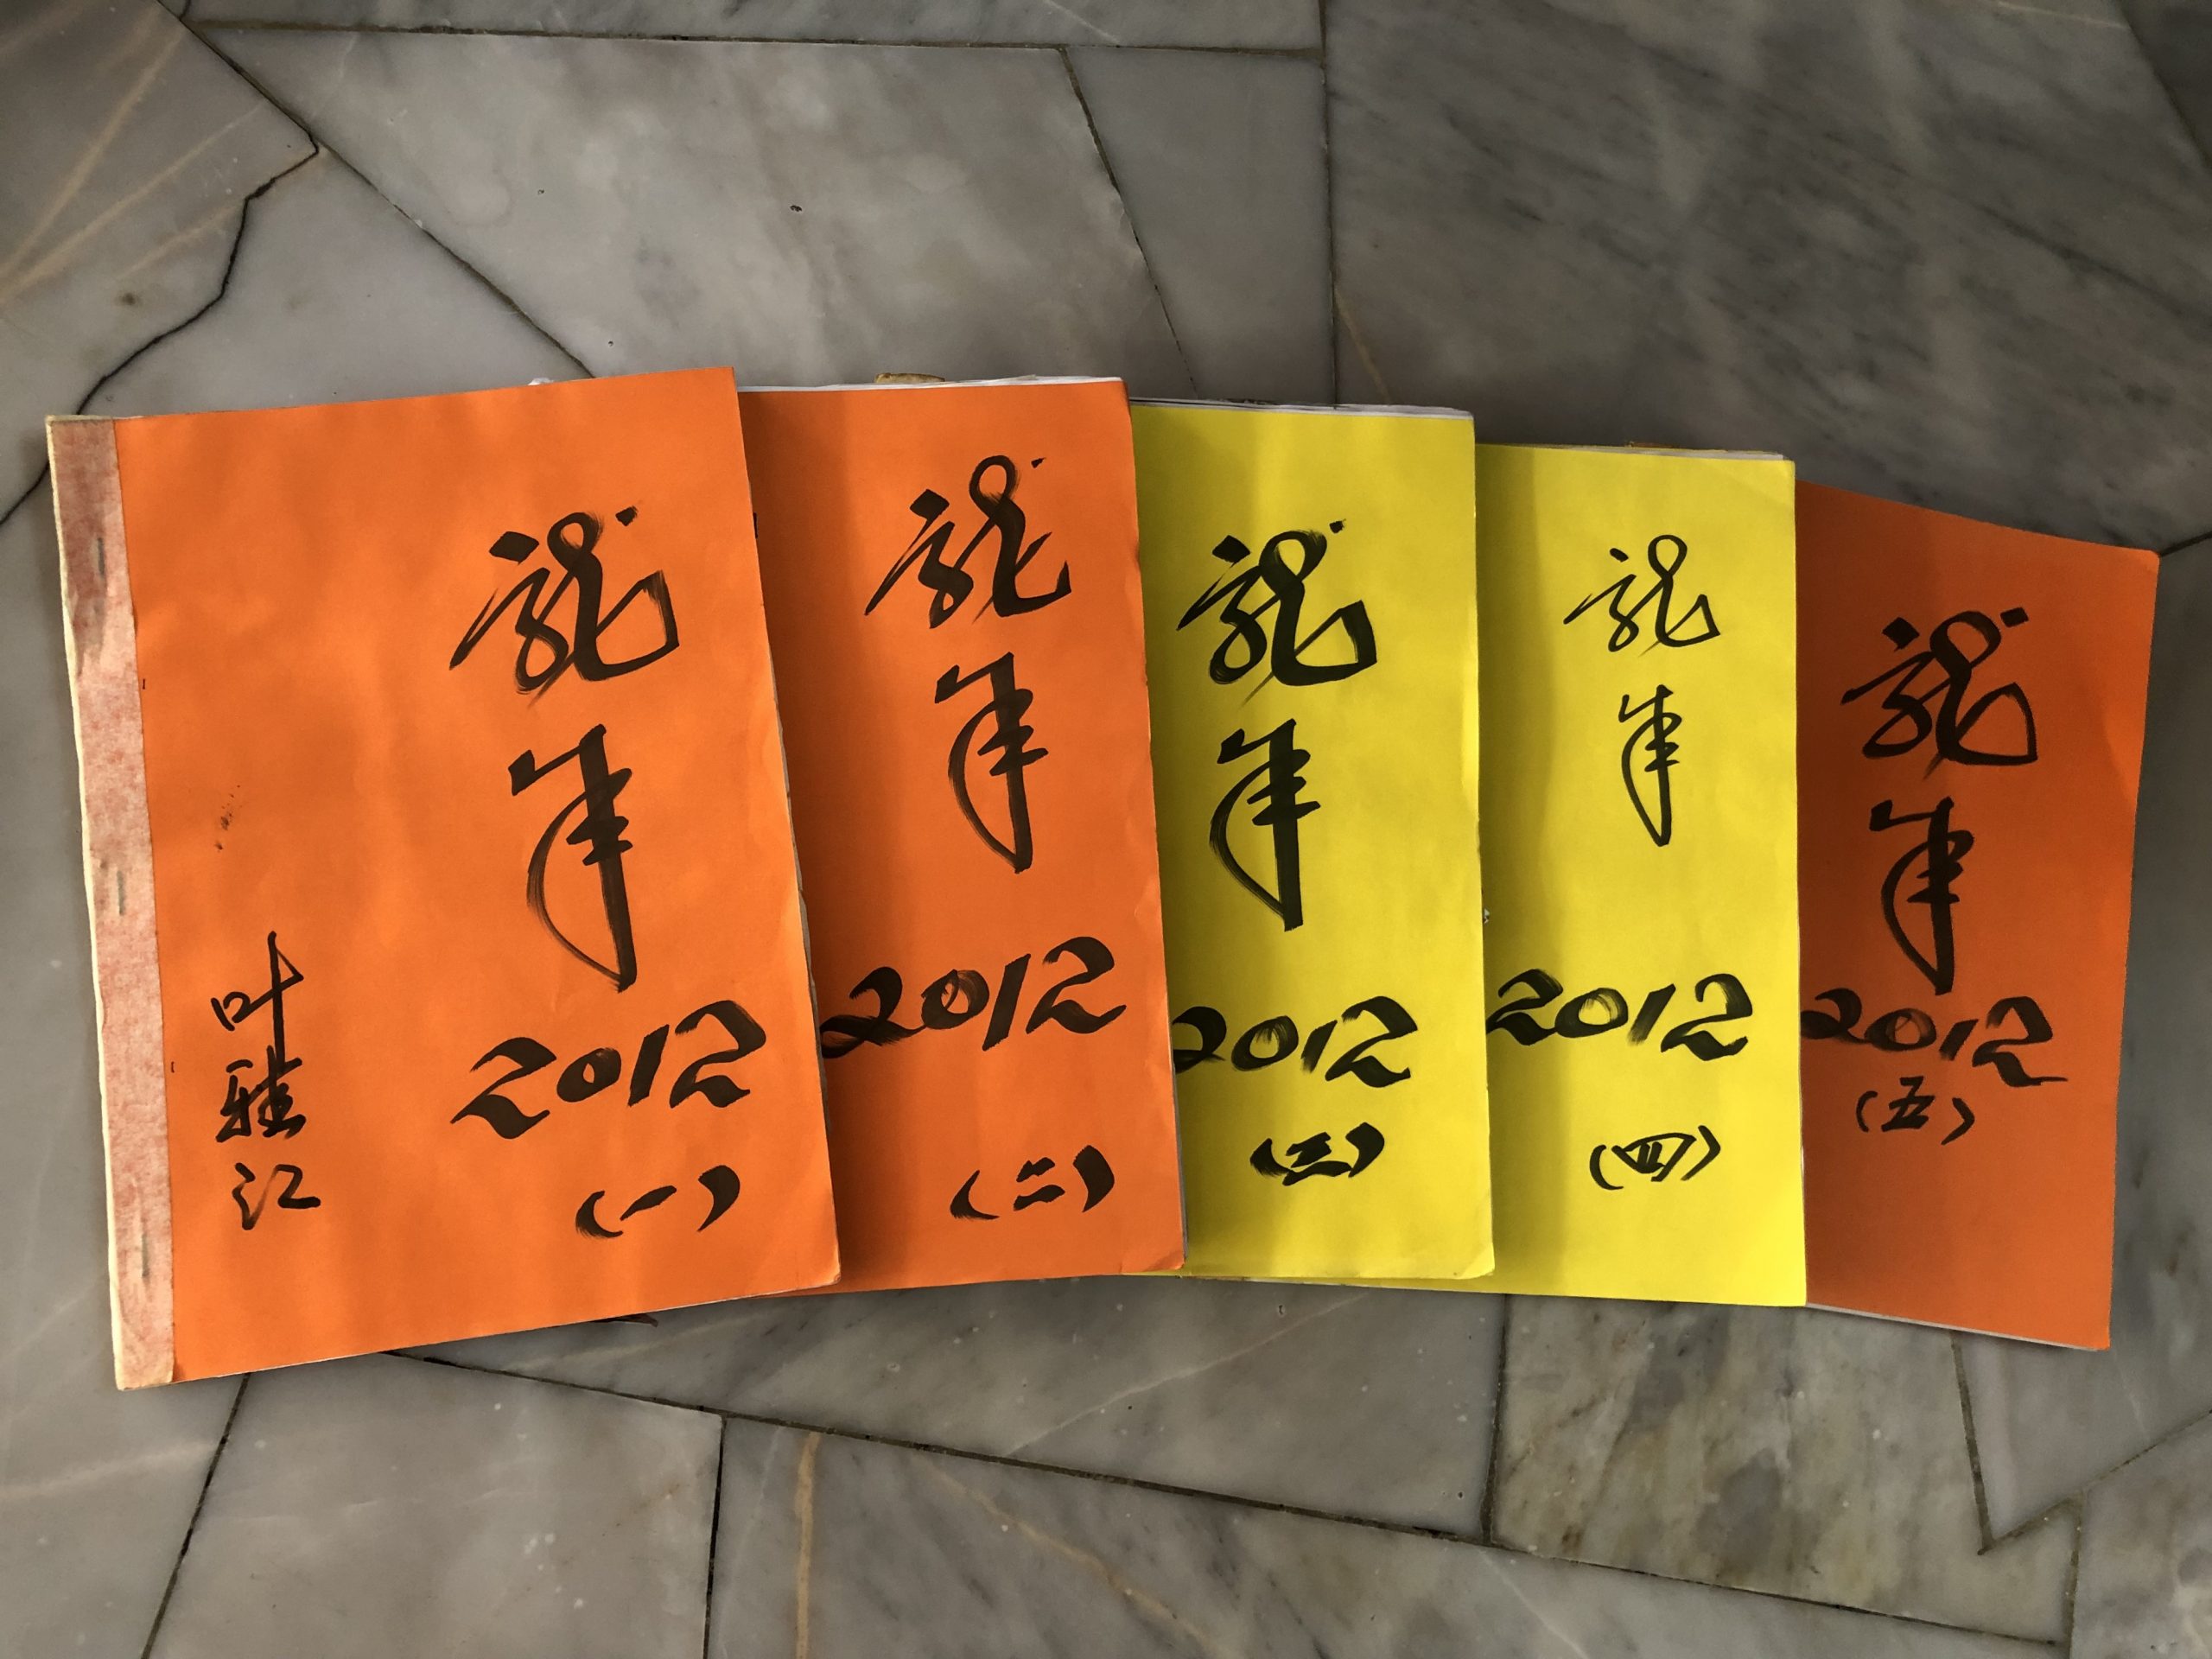 龍年
2012
(一)
叶雅江
龍年
2012
(二)
龍年
2012
(三)
龍年
2012
(四)
龍年
2012
(五)